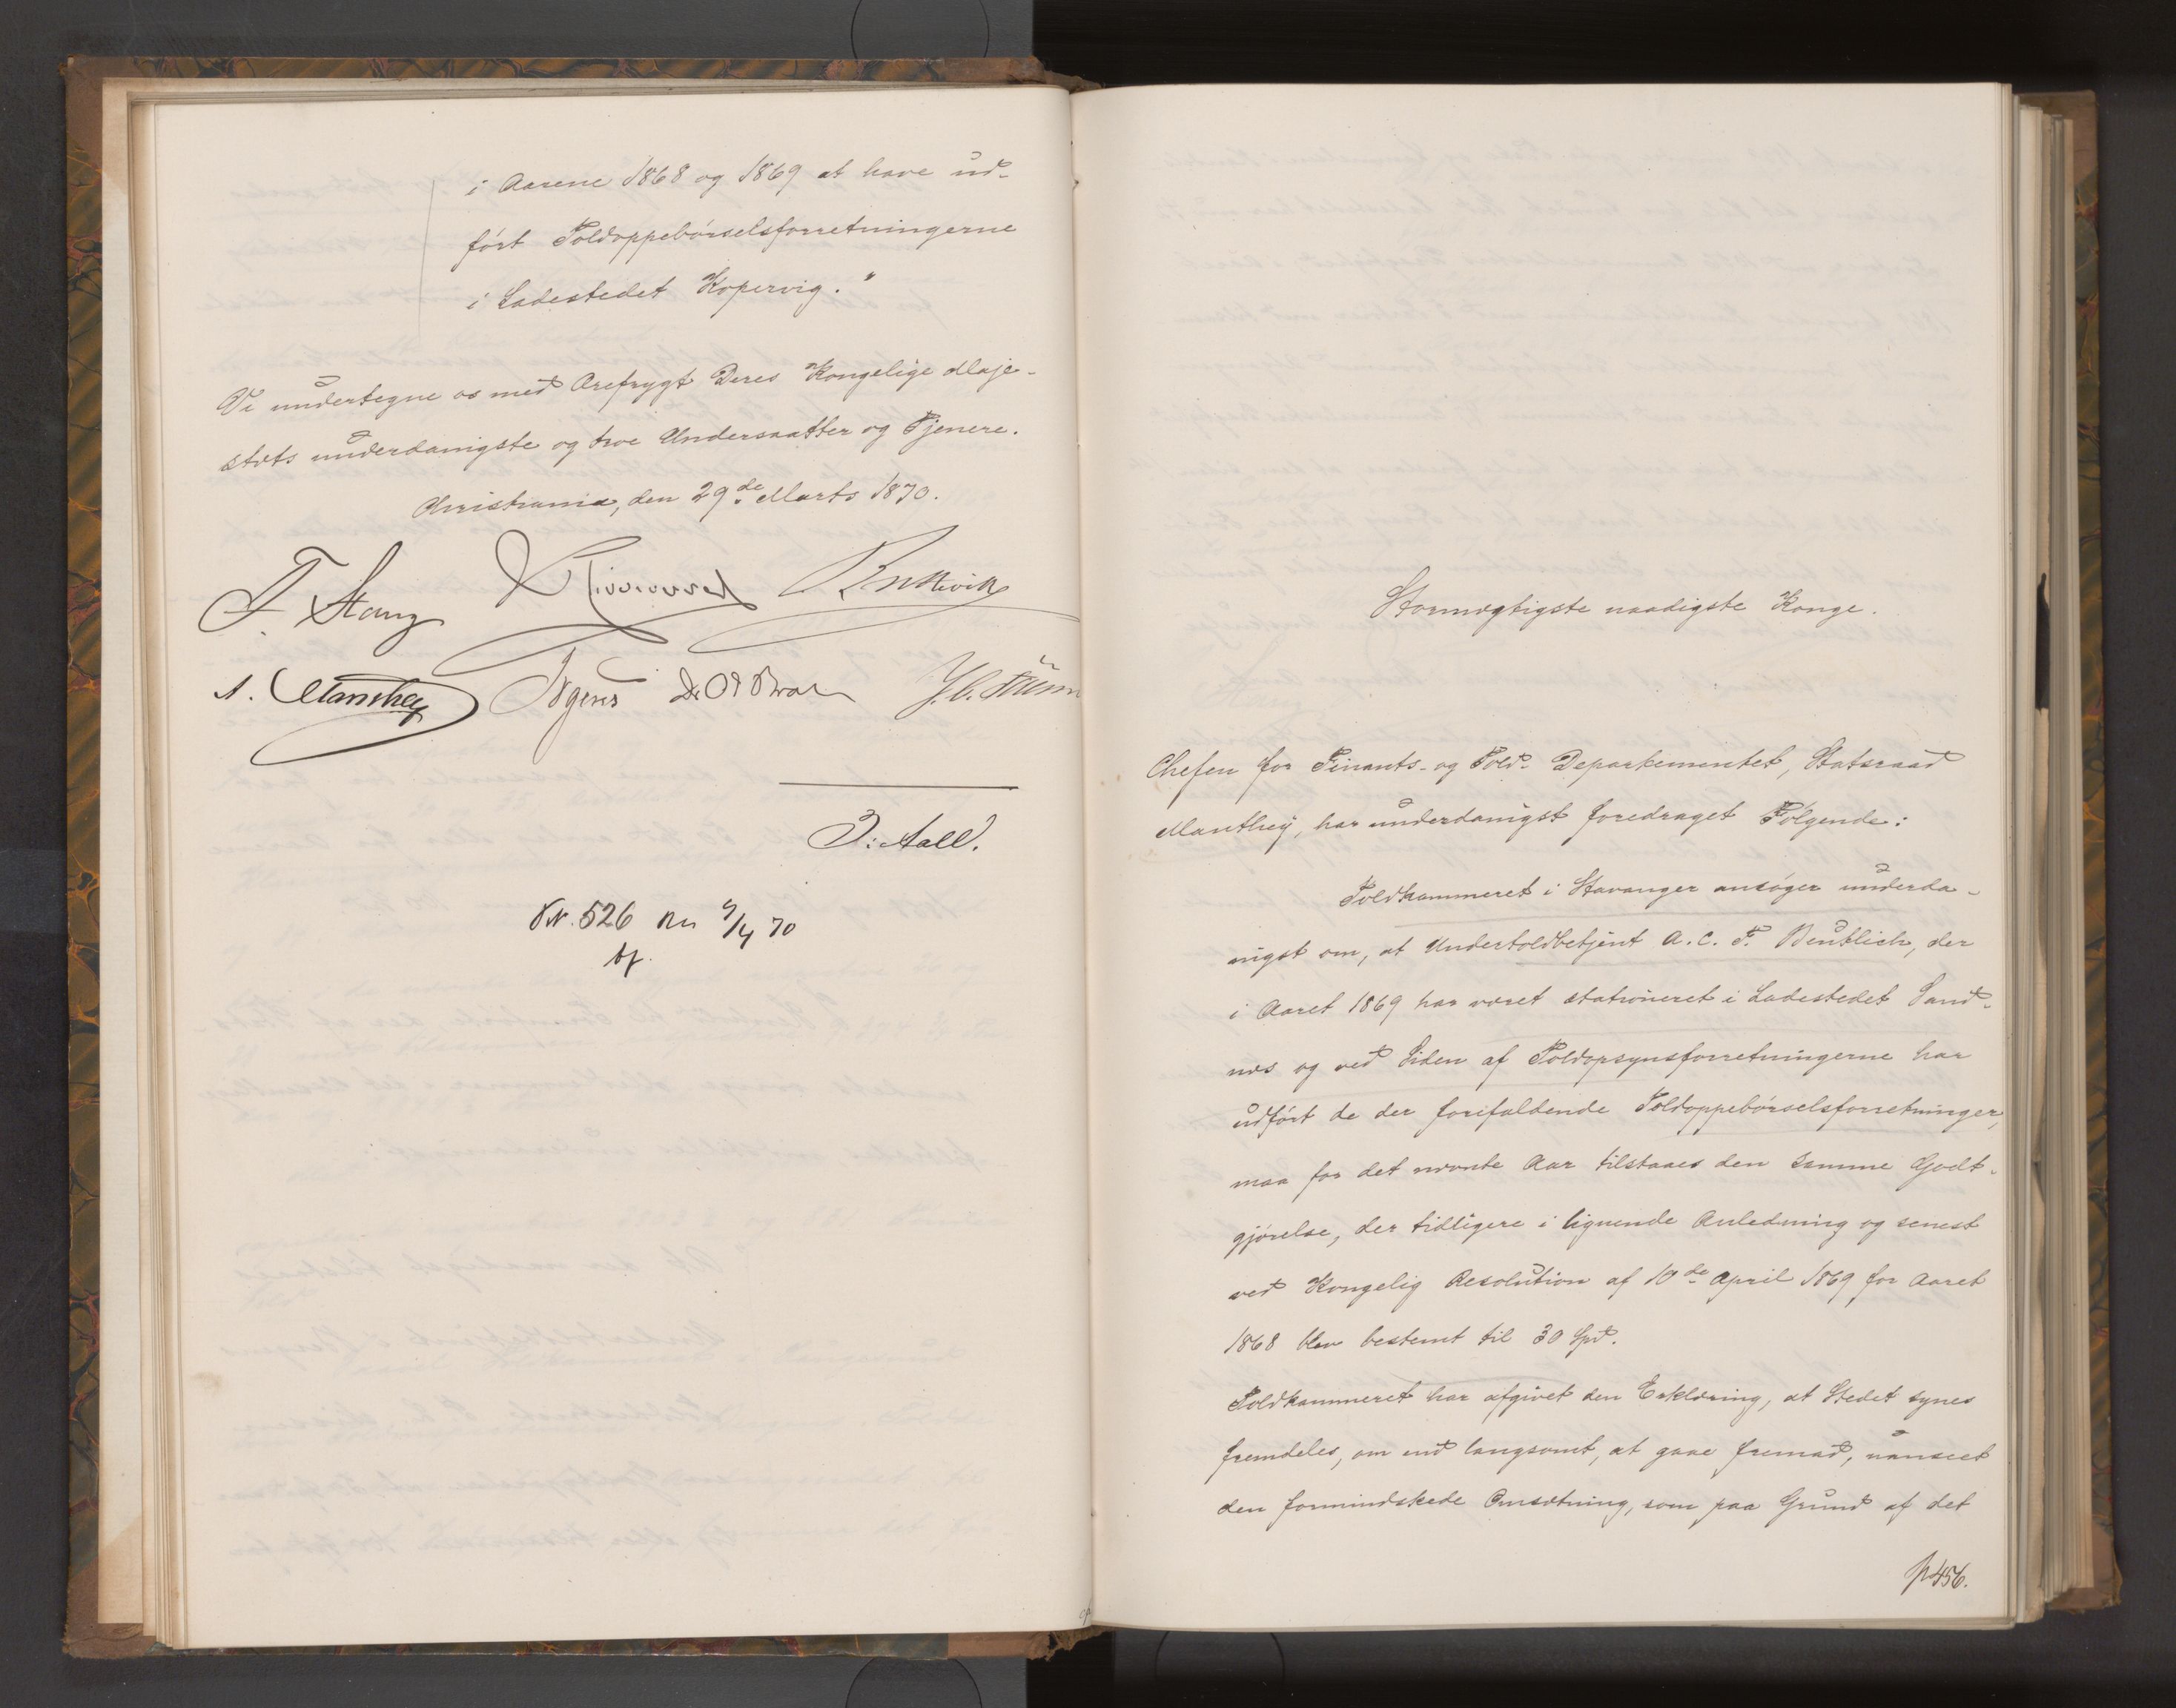 i Aarene 1868 og 1869 at have ud-
ført Toldoppebørselsforretningerne
i Ladestedet Kopervig."
Vi undertegne os med Ærefrygt Deres Kongelige Maje-
stæts underdanigste og troe Undersaatter og Tjenere.
Christiania, den 29de Marts 1870.
F. Stang
A. Manthey
J: Aall.
№. 526 9/4 70
Stormægtigste naadigste Konge.
Chefen for Finants- og Told- Departementet, Statsraad
Manthey, har underdanigst foredraget Følgende:
Toldkammeret i Stavanger ansøger underda-
nigst om, at Undertoldbetjent A. C. F. Beutlich, der
i Aaret 1869 har været stationeret i Ladestedet Sand-
næs og ved Siden af Toldopsynsforretningerne har
udført de der forefaldende Toldoppebørselsforretninger,
maa for det nævnte Aar tilstaaes den samme Godt-
gjørelse, der tidligere i lignende Anledning og senest
ved Kongelig Resolution af 10de April 1869 for Aaret
1868 blev bestemt til 30 Spd.
Toldkammeret har afgivet den Erklæring, at Stedet synes
fremdeles, om end langsomt, at gaae fremad, uanseet
den formindskede Omsætning, som paa Grund af det
p 456.